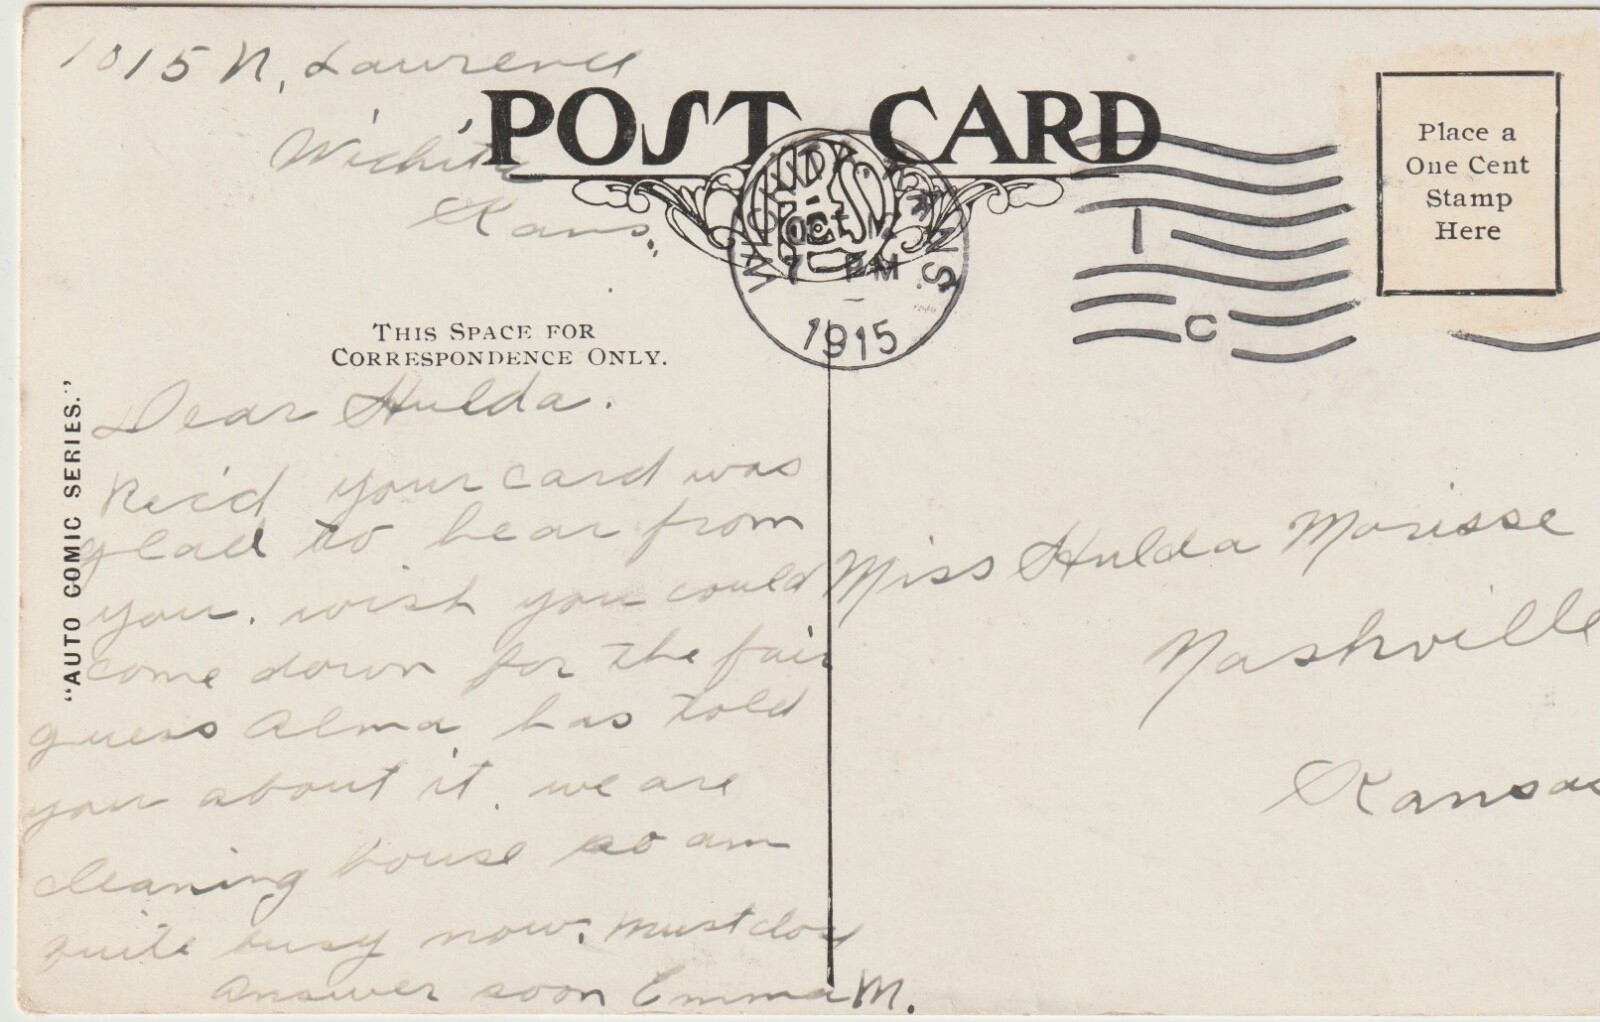 1015 N. Lawrence
Wichita
Kans.
POST CARD
OCT 12
7 PM
1915
KANS.
1
C
Place a
One Cent
Stamp
Here
THIS SPACE FOR
CORRESPONDENCE ONLY.
"AUTO COMIC SERIES."
Dear Hulda.
Rec'd your card was
glad to hear from
you. wish you could
come down for the fair
guess Alma has told
you about it. we are
cleaning house so am
quite busy now. must close
Answer soon Emma M.
Miss Hulda Morisse
Nashville
Kansas